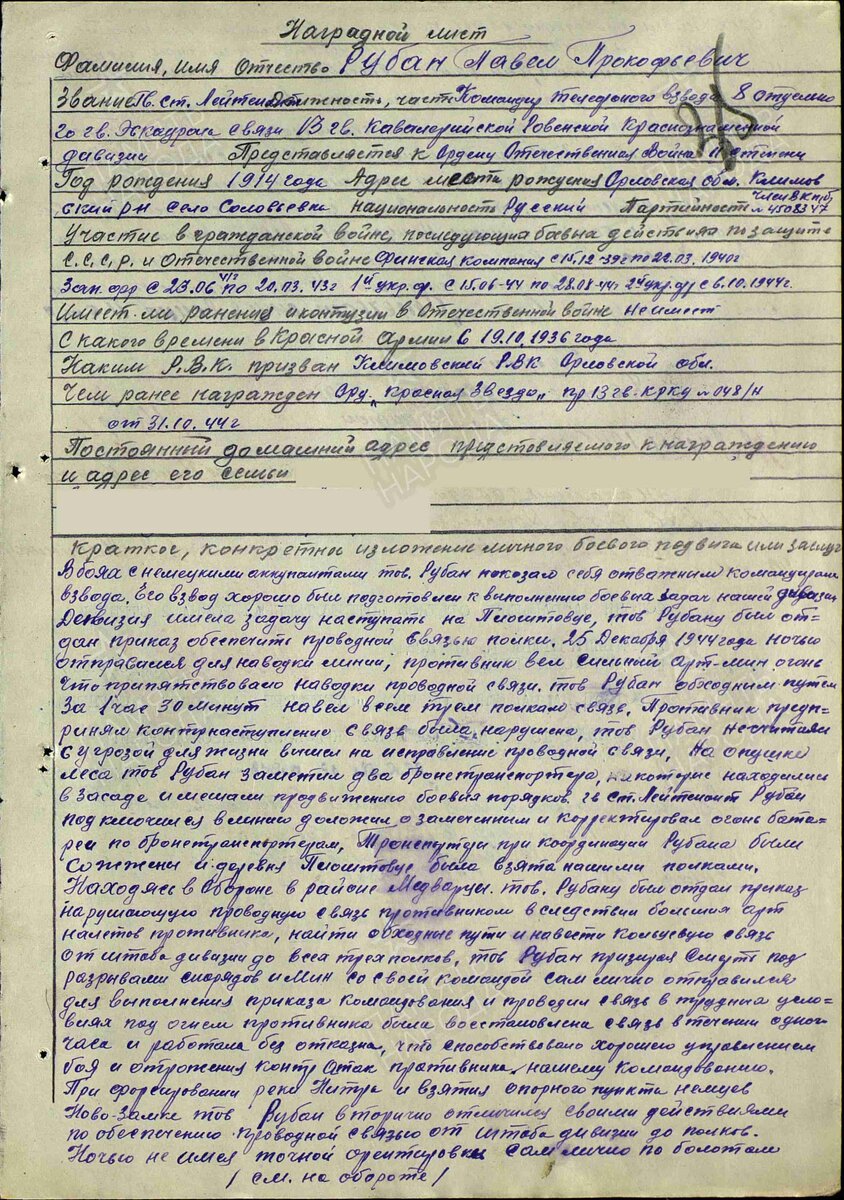 Наградной лист
Фамилия, имя Отчество Рубан Павел Прокофьевич
Звание Гв. ст. Лейтен Должность, часть Командир телефоного взвода 8 отдельно
го гв. Эскадрона связи 13 гв. Кавалерийской Ровенской Краснознаменной
дивизии Представляется к Ордену Отечественная Война II степени
Год рождения 1914 года Адрес места рождения Орловская обл. Климов
ский рн село Соловьевка национальность Русский Партийность член ВКПб
№ 4508347
Участие в гражданской войне, последующих боевых действиях по защите
С.С.С.Р. и отечественной войне Финская компания с 15.12-39г по 22.03. 1940г
Зап. фр с 23.06 41г по 20.03. 43г 1й укр. ф. с 15.06-44 по 28.08-44г 2й укр. фр с 6.10.1944г.
Имеет ли ранения и контузии в Отечественной войне не имеет
С какого времени в Красной армии с 19.10.1936 года
Каким Р.В.К. призван Климовский РВК Орловской обл.
Чем ранее награжден Орд „Красная Звезда„ пр 13 гв. КРКД № 048/н
от 31.10.44г
Постоянний домашний адрес представляемого к награждению
и адрес его семьи
Краткое, конкретное изложение личного боевого подвига или заслуг
В боях с немецкими аккупантами тов. Рубан показал себя отважным командиром
взвода. Его взвод хорошо был подготовлен к выполнению боевых задач нашей дивизии
Дивизия имела задачу наступать на Плоштовце, тов Рубану был от-
дан приказ обеспечить проводной связью полки. 25 Декабря 1944 года ночью
отправился для наводки линии, противник вел сильний арт-мин огонь
что припятствовало наводки проводной связи. тов Рубан обходним путем
за 1 час 30 минут навел всем трем полкам связь. Противник предп-
ринял контрнаступление связь была нарушена, тов Рубан несчитаясь
с угрозой для жизни вышел на исправление проводной связи, На опушке
леса тов Рубан заметил два бронетранспортера, которие находились
в засаде и мешали продвижению боевих порядков. гв ст. Лейтенант Рубан
подключился в линию доложил о замеченним и корректировал огонь бата-
реи по бронетранспортерам, Транспортери при координации Рубана были
сожжены и деревня Плоштовце была взята нашими полками.
Находясь в Обороне в районе Медварци. тов. Рубану был отдан приказ
нарушающую проводную связь противником в следствии больших арт
налетов противника, найти обходные пути и навести кольцевую связь
от штаба дивизии до всех трех полков, тов Рубан призирая Смерть под
разрывами снарядов и мин со своей командой сам лично отправился
для выполнения приказа командования и проводил связь в трудних усло-
виях под огнем противника была восстановлена связь в течении одного
часа и работала без отказна, что способствовало хорошего управлением
боя и отрожения контр Атак противника, нашему командованию.
При форсировании реки Нитра и взятия опорного пункта немцев
Ново-Замке тов Рубан вторично отличился своими действиями
по обеспечению проводной связью от штаба дивизии до полков.
Ночью не имея точной ориентировки сам лично по болотам
/ см. на обороте /